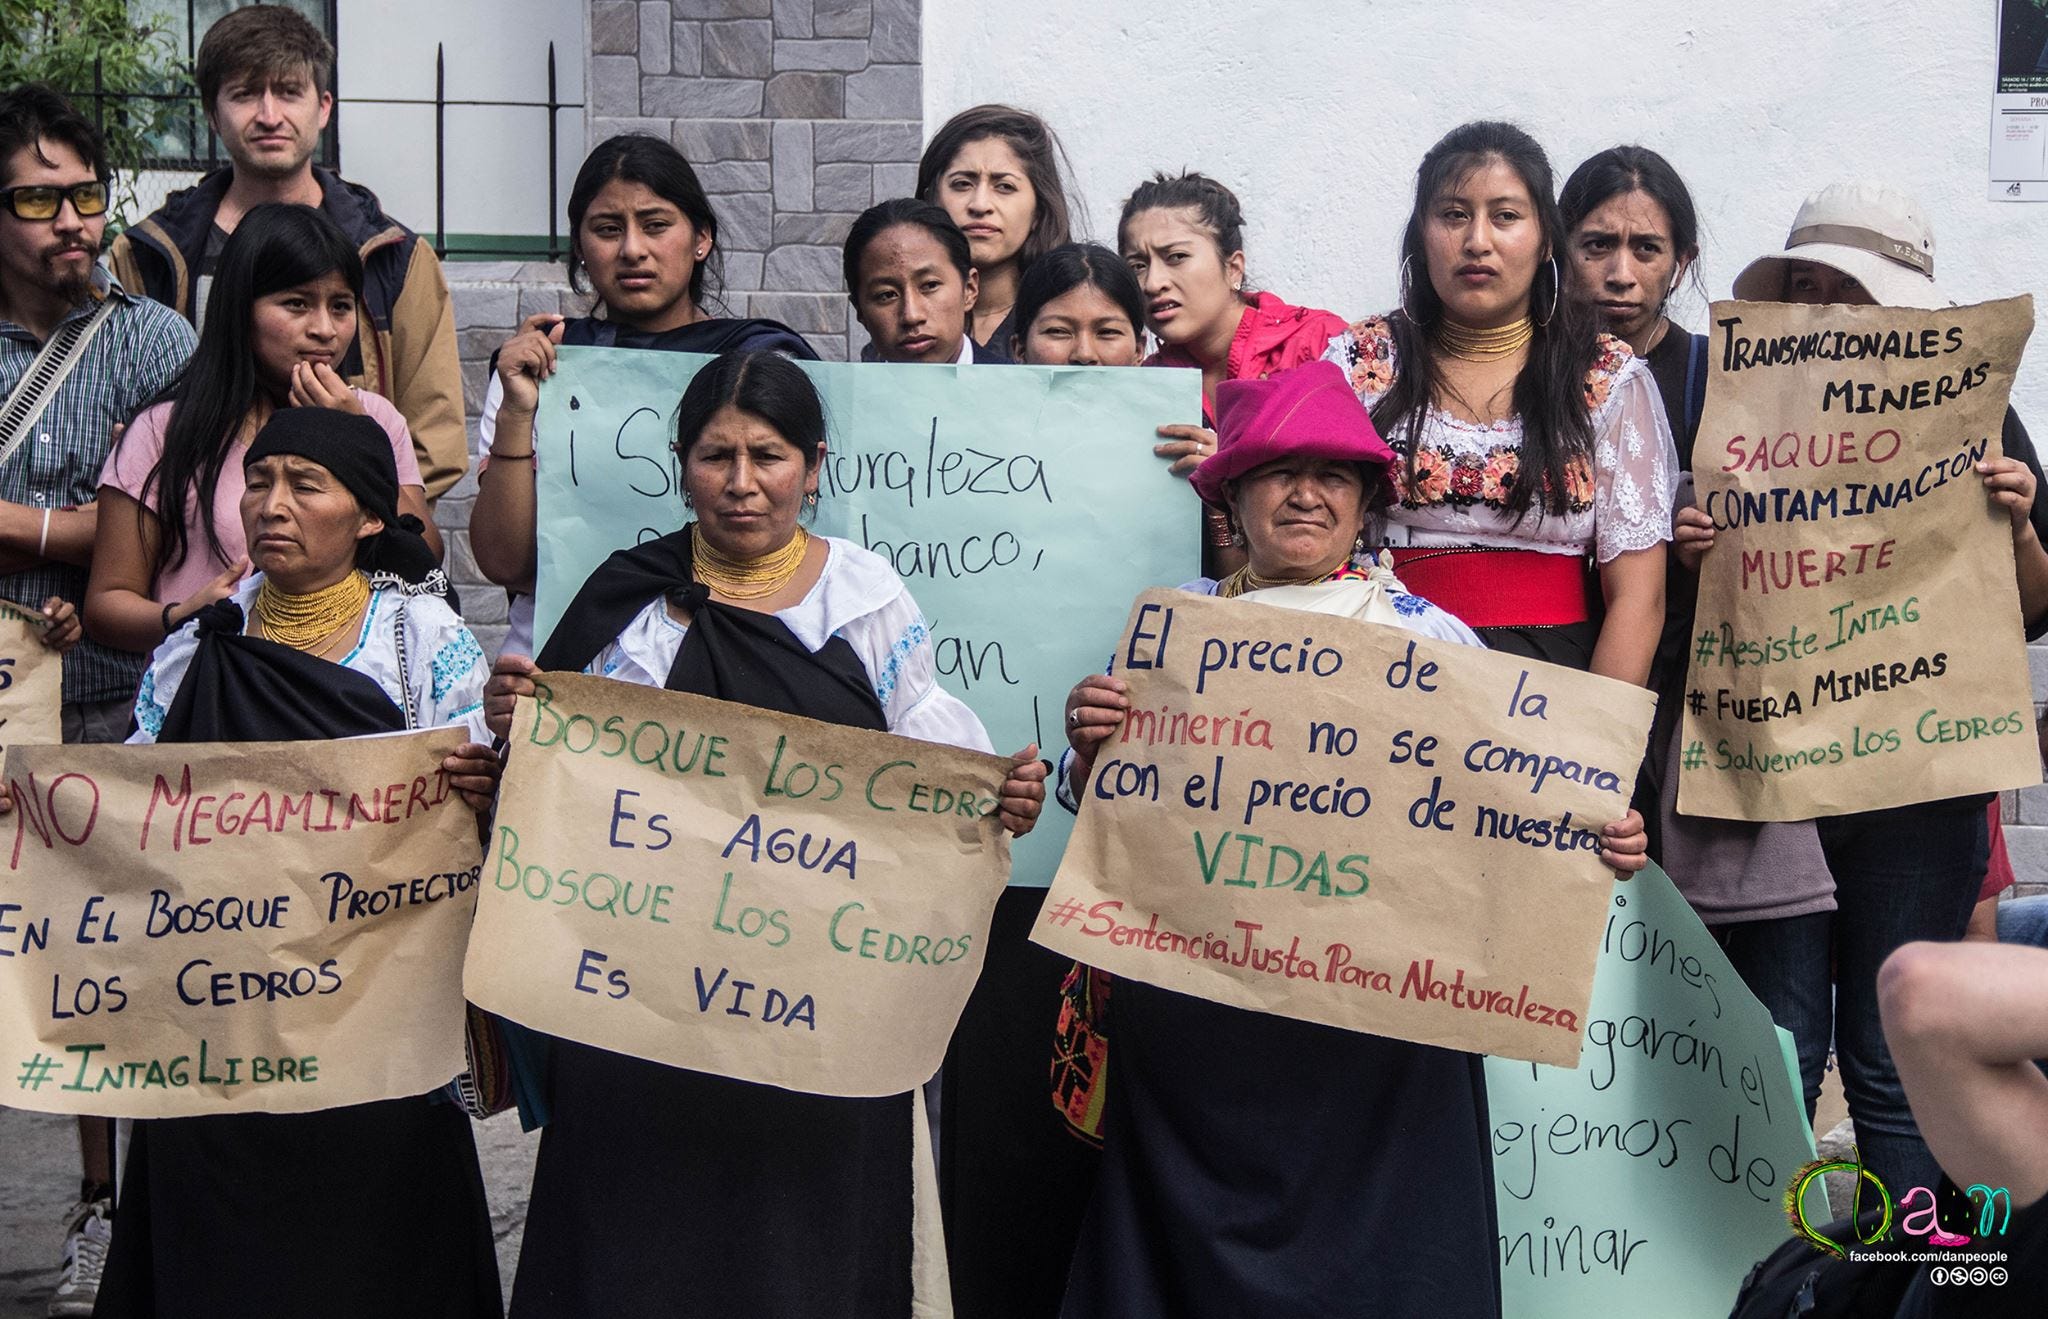 NO MEGAMINERI
EN EL BOSQUE PROTECTOR
LOS CEDROS
#INTAGLIBRE
BOSQUE LOS CEDRO
ES AGUA
BOSQUE LOS CEDROS
ES VIDA
¡ Si
turaleza
banco,
an
!
El precio de la
minería no se compara
con el precio de nuestra
VIDAS
#SentenciaJustaParaNaturaleza
TRANSNACIONALES
MINERAS
SAQUEO
CONTAMINACIÓN
MUERTE
#Resiste INTAG
# FUERA MINERAS
# Salvemos LOS CEDROS
iones
garán el
ejemos de
minar
V.E.R.
PRO
dan
facebook.com/danpeople